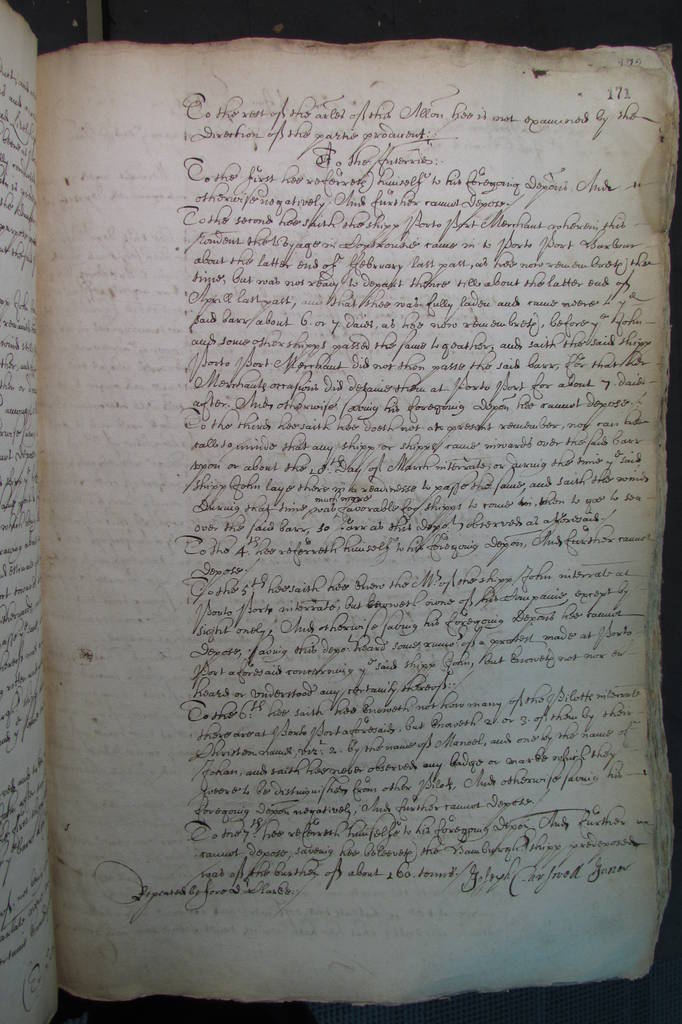 171
To the rest of the arles of the Allon hee is not examined by the
direction of the partie producent:
To the Interries:
To the first hee referreth himselfe to his foregoing deposn And
otherwise negatively And further cannot depose.
To the second hee saith the shipp Porto Port Merchant wherein this
rendent the voyage in came in to Porto Port Barbour
about the latter end of February last past, as hee now remembreth the
time, but was not ready to depart thence till about the latter end of
Aprill last past, and that shee was fully laden and came neere ye
said barr about 6 or 7 daies, as hee now remembreth, before ye John
and some other shipps passed the same together, and saith the said shipp
Porto Port Merchant did not then passe the said barr, for that her
Merchants occasions did detaine them at Porto Port for about 7 daies
after. And otherwise saving his foregoing depon hee cannot depose.
To the third hee saith hee doeth not at present remember, nor can hee
call to minde that any shipp or shipps came inwards over the said barr
upon or about the day of March interrate, or during the time ye said
shipp John laye there in a readinesse to passe the same, and saith the winds
during that time was much more favorable for shipps to come in then to goe to sea
over the said barr, so farr as this depot observed as aforesaid.
To the 4th hee referreth himselfe to his foregoing depon, And further cannot
depose.
To the 5th hee saith hee knew the Mr of the shipp John interrate at
Porto Porto interrate, but knoweth none of his Companie, except by
sight onely, And otherwise saving his foregoing deposn hee cannot
depose, saving this depot heard some rumor of a protest made at Porto
Port aforesaid concerning ye said shipp John, but knoweth not nor ever
heard or understood any certainty thereof:
To the 6th hee saith hee knoweth not how many of the Pilotts interrate
there are at Porto Port aforesaid, but knoweth 2 or 3 of them by their
Christen names, vizt 2 by the name of Manoel, and one by the name of
Johan, and saith hee never observed any badge or marke which they
weere to be distinguished from other Pilots, And otherwise saving his
foregoing depon negatively, And further cannot depose.
To the 7th hee referreth himselfe to his foregoing depon, And further
cannot depose, saveing hee beleeveth the Hamburgh shipp predeposed
was of the burthen of about 160 tonns.
Joseph Carswell Junor
Repeated before Dr Clarke: